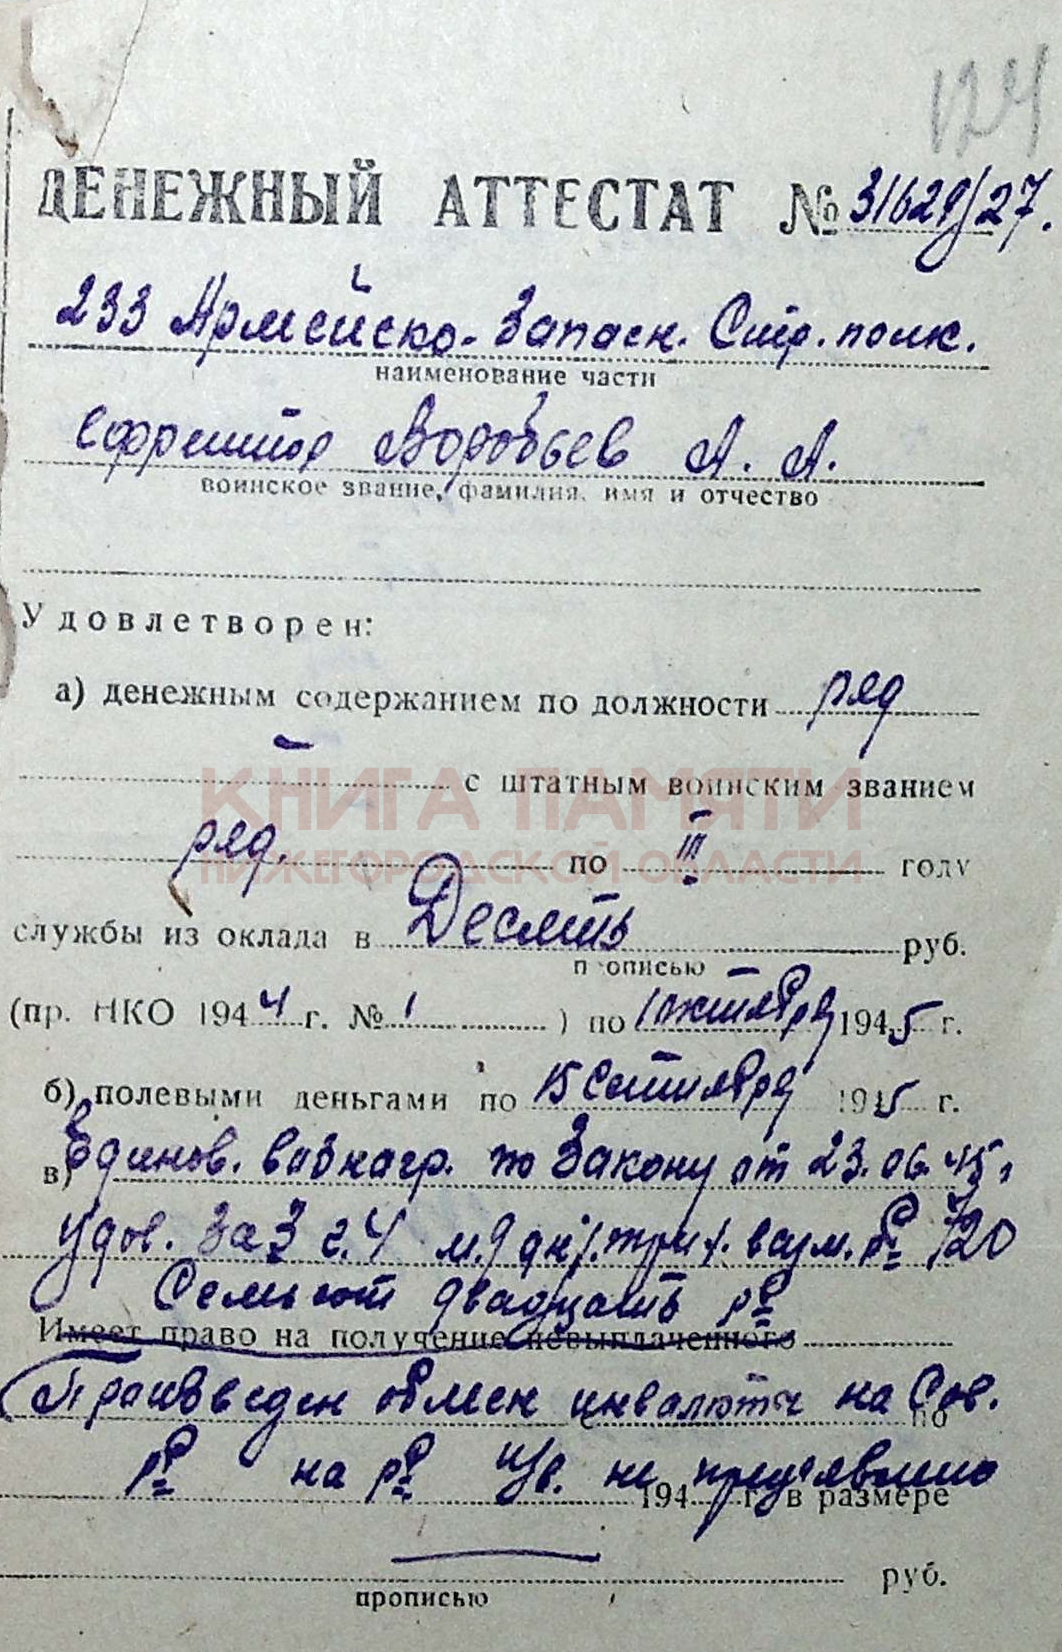 124
ДЕНЕЖНЫЙ АТТЕСТАТ № 31629/27.
233 Армейско-Запасн. Стр. полк.
наименование части
ефрейтор Воробьев А. А.
воинское звание, фамилия, имя и отчество
Удовлетворен:
а) денежным содержанием по должности ряд
— с штатным воинским званием
КНИГА ПАМЯТИ
ряд. по III году
НИЖЕГОРОДСКОЙ ОБЛАСТИ
службы из оклада в Десять руб.
прописью
(пр. НКО 1944 г. № 1 ) по 1 октября 1945 г.
б) полевыми деньгами по 15 сентября 1945 г.
в) Единов. вознагр. по Закону от 23.06.45г
удов. за 3 г. 4 м. 9 дн 720
Семьсот двадцать р
Имеет право на получение невыплаченного
Произведен обмен инвалюты на Сов.
по
р на р Ин. не предъявлено
194 г. в размере
руб.
прописью